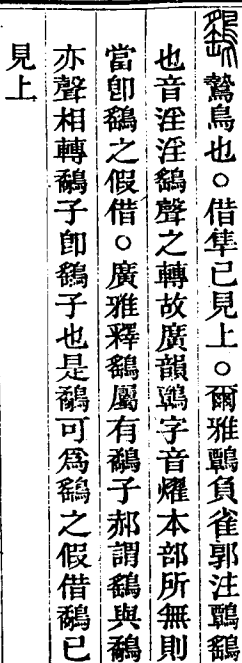 鷂鷙鳥也○借隼已見上○爾雅鷣負雀郭注鷣鷂
也音淫淫鷂聲之轉故廣韻鷣字音燿本部所無則
當卽鷂之假借○廣雅釋鷂屬有鷸子郝謂鷂與鷸
亦聲相轉鷸子卽鷂子也是鷸可爲鷂之假借鷸已
見上